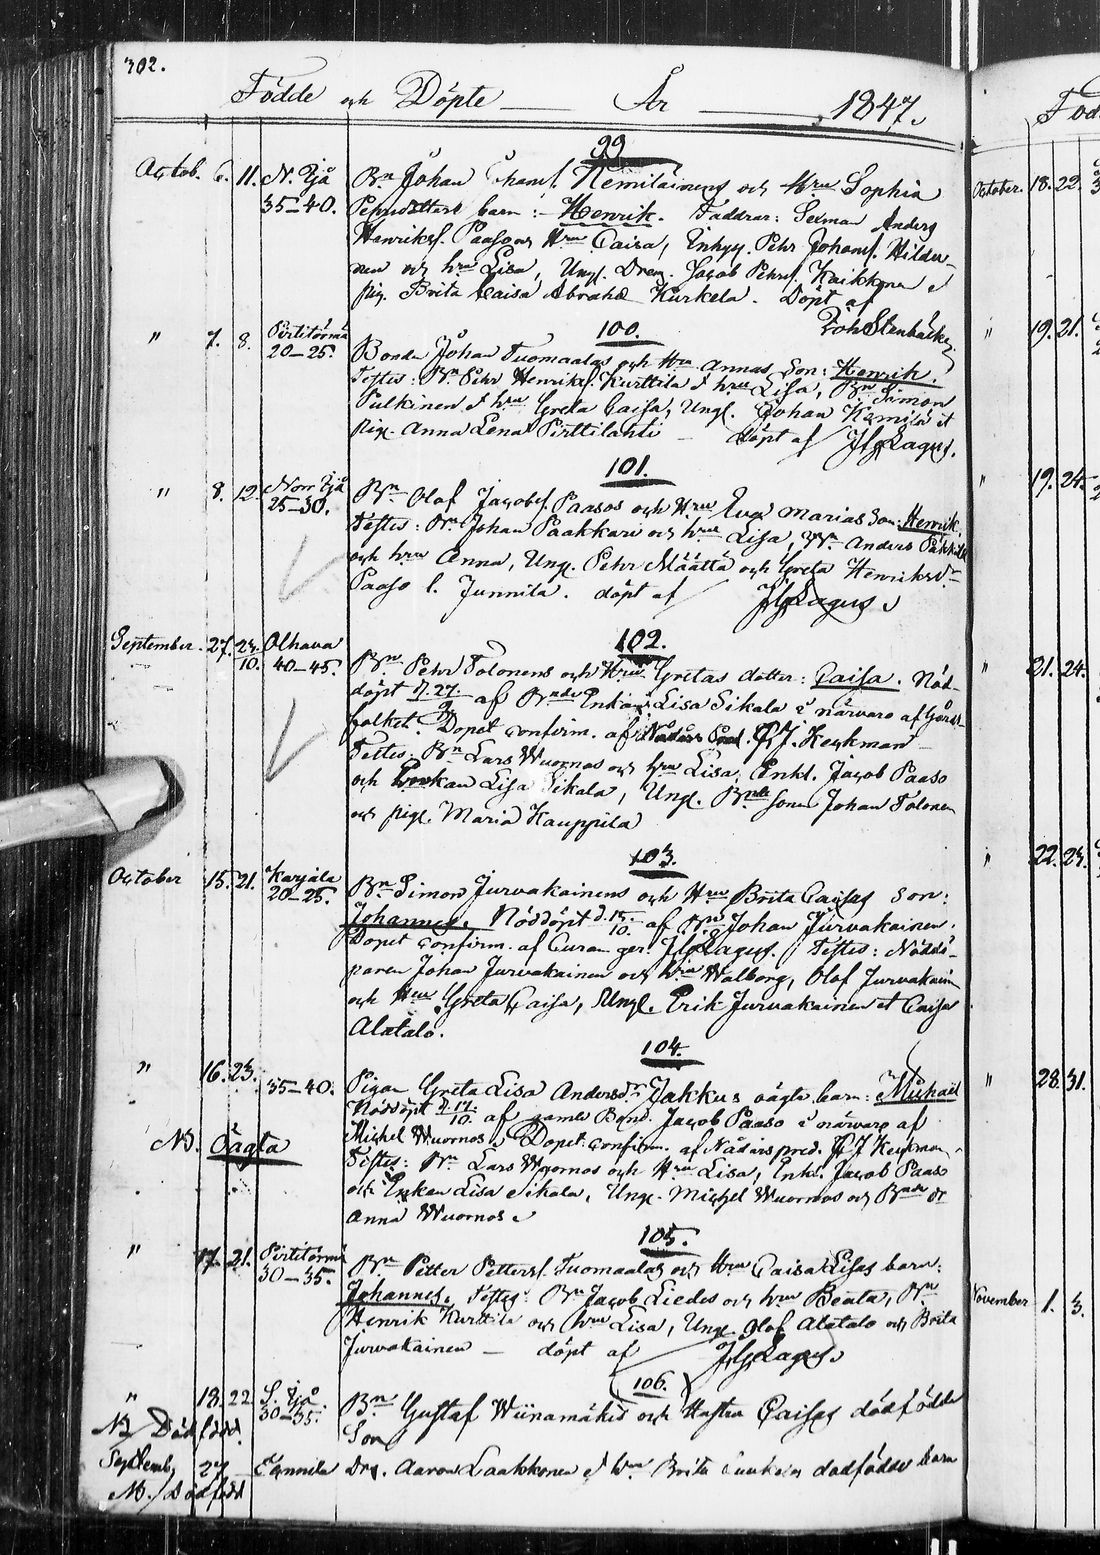 302.
Födde och Döpte År 1847.
99
Octob. 6. 11. N. Ijå Bn Johan Hemiläinens och Hru Sophia
35–40. barn: Henrik. Faddrar: Anders
Henrikss. Paaso och Hru Caisa, Pehr Johanss.
och hru Lisa, Ungl. Dreng. Jacob Pehrs. Kaikkonen &
pig. Brita Caisa Abrahd Kurkela. Döpt af
Joh Stenbäck
100.
" 7. 8. Pirttitörmä
20–25. Bonden Johan Tuomaalas och Hru Annas Son: Henrik.
Testes: Bn Pehr Henrikss. Kurttila & hru Lisa, Bn Simon
Pulkinen & hru Greta Caisa, Ungl. Johan et
pig. Anna Lena Pirttilahti — döpt af JG Lagus.
101.
" 8. 12. Norr Ijå
25–30. Bn Olof Jacobss. Paasos och Hru Eva Marias Son: Henrik.
Testes: Bn Johan Paakkari och hru Lisa, Bn Anders
och hru Anna, Ungl. Pehr Määttä och Greta Henriksdr
Paaso l. Junnila. döpt af JG Lagus
102.
September. 27. 24/10. Olhava
40–45. Bn Pehr Tolonens och Hru Gretas dotter: Caisa. Nöd-
döpt d. 27. af Enkan Lisa Sikala i närvaro af
folket. Dopet confirm. af Nådårs Pred. J. Heickman
Testes: Bn Lars Wuornos och hru Lisa, Enkl. Jacob Paaso
och Enkan Lisa Sikala, Ungl. Bnde Sonen Johan Tolonen
och pigl. Maria Kauppila
103.
October 15. 21. Karjala
20–25. Bn Simon Jurvakainens och Hru Brita Caisas Son:
Johannes. Nöddöpt d. 15/10. af Bn Johan Jurvakainen.
Dopet confirm. af Curam ger. JG Lagus. Testes: Nöddö-
paren Johan Jurvakainen och hru Walborg, Olof Jurvakainen
och Hru Greta Caisa, Ungl. Erik Jurvakainen et Caisa
Alatalo.
104.
" 16. 23. 35–40. Pigan Greta Lisa Andersdr Jakkus oägta barn: Michael
Nöddöpt d. 17/10. af gamle Bond. Jacob Paaso i närvaro af
Michel Wuornos. Dopet confirm. af Nådårs pred. J Heickman.
NB. Oägta
Testes: Bn Lars Wuornos och Hru Lisa, Enkl. Jacob Paaso
och Enkan Lisa Sikala, Ungl. Michel Wuornos och Bnde dr
Anna Wuornos
105.
" 17. 21. Pirttitörmä
30–35. Bn Petter Petterss. Tuomaalas och Hru Caisa Lisas barn:
Johannes. Testes: Bn Jacob Liedes och hru Beata, Bn
Henrik Kurttila och hru Lisa, Ungl. Olof Alatalo och Brita
Jurvakainen — döpt af JG Lagus
106.
" 18. 22. S. Ijå
30–35. Bn Gustaf Wiinamäkis och Hustru Caisas dödfödde
Son
NB Dödfödd.
Septemb. 27 Drg. Aaron Laakkonen & hru Brita dödfödde barn
NB. Dödfödd
Föd
October. 18. 22.
" 19. 21.
" 19. 24.
" 21. 24.
" 22. 23.
" 28. 31.
November 1. 3.